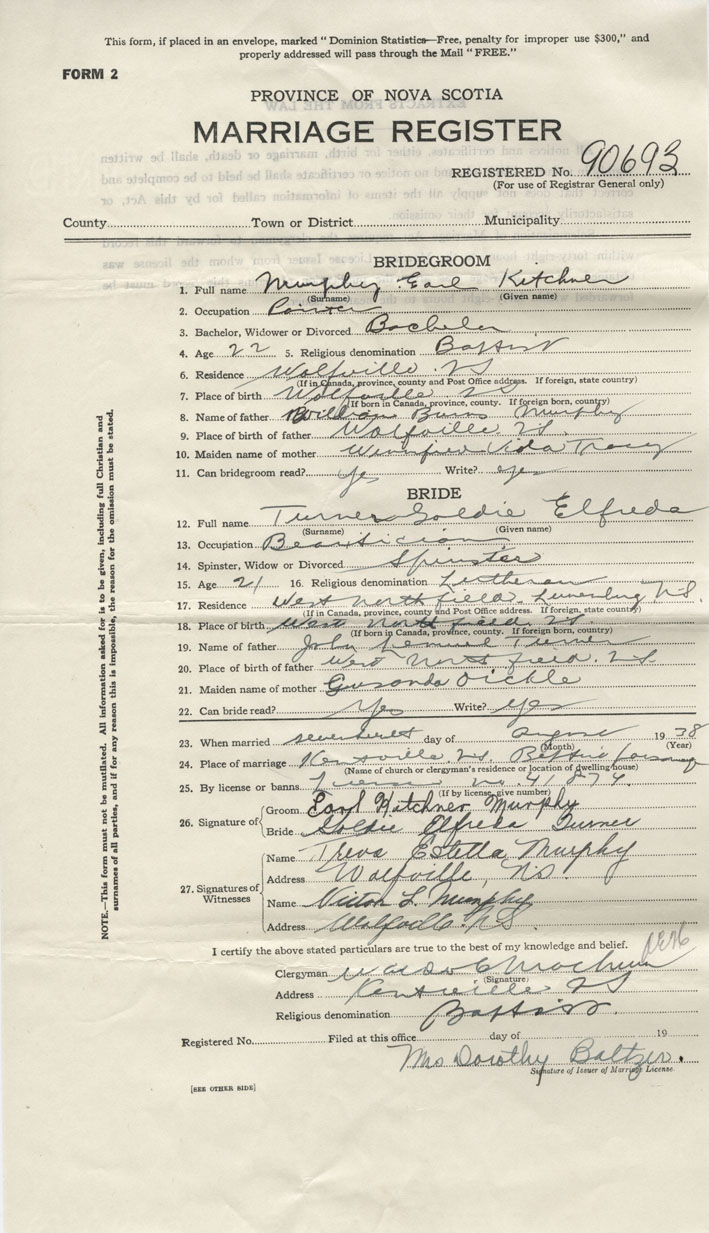 This form, if placed in an envelope, marked "Dominion Statistics—Free, penalty for improper use $300," and
properly addressed will pass through the Mail "FREE."
FORM 2
PROVINCE OF NOVA SCOTIA
MARRIAGE REGISTER
REGISTERED No. 90693
(For use of Registrar General only)
County Town or District Municipality
BRIDEGROOM
1. Full name Murphy Earl Kitchner
(Surname) (Given name)
2. Occupation
3. Bachelor, Widower or Divorced Bachelor
4. Age 22 5. Religious denomination Baptist
6. Residence Wolfville NS
(If in Canada, province, county and Post Office address. If foreign, state country)
7. Place of birth Wolfville NS
(If born in Canada, province, county. If foreign born, country)
8. Name of father William Burns Murphy
9. Place of birth of father Wolfville NS.
10. Maiden name of mother Winnifred Vida Tracy
11. Can bridegroom read? Yes Write? Yes
BRIDE
12. Full name Turner Goldie Elfreda
(Surname) (Given name)
13. Occupation Beautician
14. Spinster, Widow or Divorced Spinster
15. Age 21 16. Religious denomination Lutheran
17. Residence West Northfield, Lunenburg N.S.
(If in Canada, province, county and Post Office address. If foreign, state country)
18. Place of birth West North field. NS.
(If born in Canada, province, county. If foreign born, country)
19. Name of father John Lemuel Turner
20. Place of birth of father West North field. NS
21. Maiden name of mother Dickle
22. Can bride read? Yes Write? Yes
23. When married day of August 1938
(Month) (Year)
24. Place of marriage Kentville NS. Baptist parsonage
(Name of church or clergyman's residence or location of dwelling house)
25. By license or banns. License no. 41874.
(If by license, give number)
26. Signature of
Groom Earl Kitchner Murphy
Bride Goldie Elfreda Turner
27. Signatures of Witnesses
Name Treva Estella Murphy
Address Wolfville, N.S.
Name Victor L. Murphy
Address Wolfville N.S.
I certify the above stated particulars are true to the best of my knowledge and belief.
Clergyman
(Signature)
Address Kentville NS
Religious denomination Baptist.
Registered No. Filed at this office day of 19
Mrs Dorothy Baltzer.
Signature of Issuer of Marriage License.
[SEE OTHER SIDE]
NOTE.—This form must not be mutilated. All information asked for is to be given, including full Christian and
surnames of all parties, and if for any reason this is impossible, the reason for the omission must be stated.